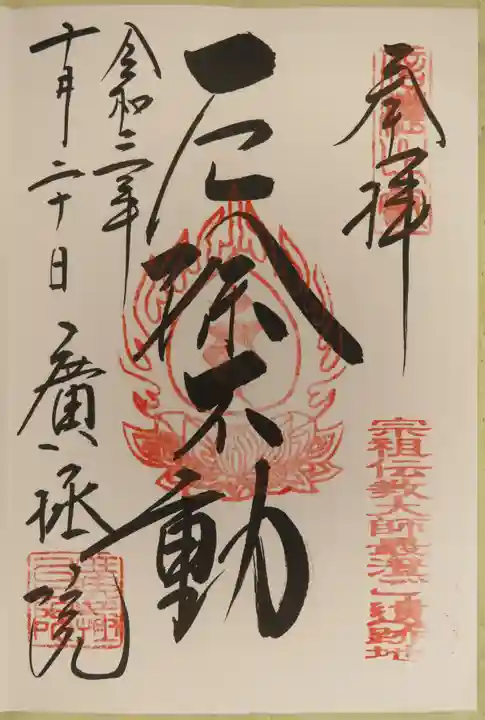 奉拝
宗祖伝教大師最澄ご遺跡地
厄除不動
令和二年
十月二十日
廣拯院